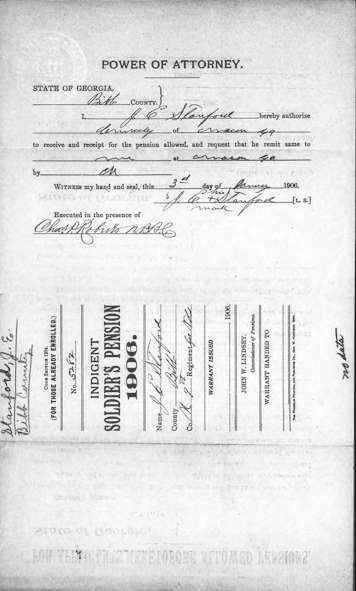 POWER OF ATTORNEY.
STATE OF GEORGIA,
Bibb COUNTY.
I, J C Stanford hereby authorize
of Macon Ga
to receive and receipt for the pension allowed, and request that he remit same to
me at Macon Ga
by ck
WITNESS my hand and seal, this 3rd day of 1906.
his
J. C. + Stanford [L. S.]
mark
Executed in the presence of
Chas P. Roberts N.P.B.C.
Stanford, J. C.
Bibb County
CODE SECTION 1254.
(FOR THOSE ALREADY ENROLLED.)
No. 5282
INDIGENT
SOLDIER'S PENSION
1906.
Name J C Stanford
County Bibb
Co. K 9th Regiment
WARRANT ISSUED
1906.
JOHN W. LINDSEY,
Commissioner of Pensions.
WARRANT HANDED TO
no data
State of Georgia,
FOR APPLICANTS HERETOFORE ALLOWED PENSIONS.